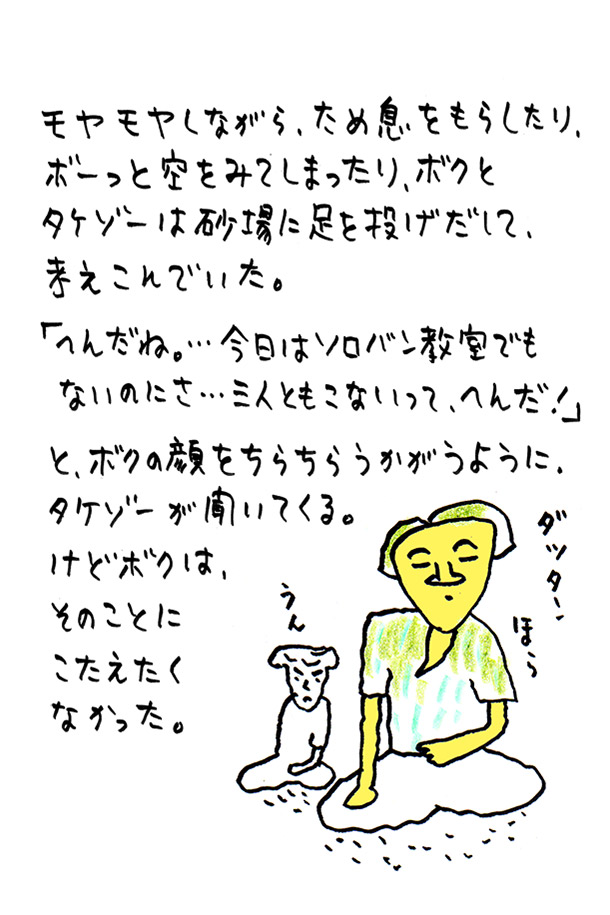 モヤモヤしながら、ため息をもらしたり、
ボーっと空をみてしまったり、ボクと
タケゾーは砂場に足を投げだして、
考えこんでいた。
「へんだね。…今日はソロバン教室でも
ないのにさ…三人ともこないって、へんだ!」
と、ボクの顔をちらちらうかがうように、
タケゾーが聞いてくる。
けどボクは、
そのことに
こたえたく
なかった。
ダッタン
ほら
うん